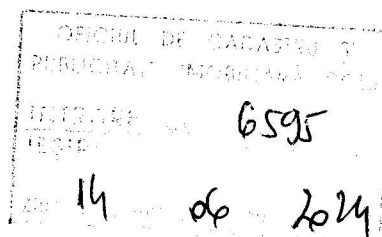 OFICIUL DE CADASTRU ȘI
PUBLICITATE IMOBILIARĂ
INTRARE 6595
IEȘIRE
14 06 2024